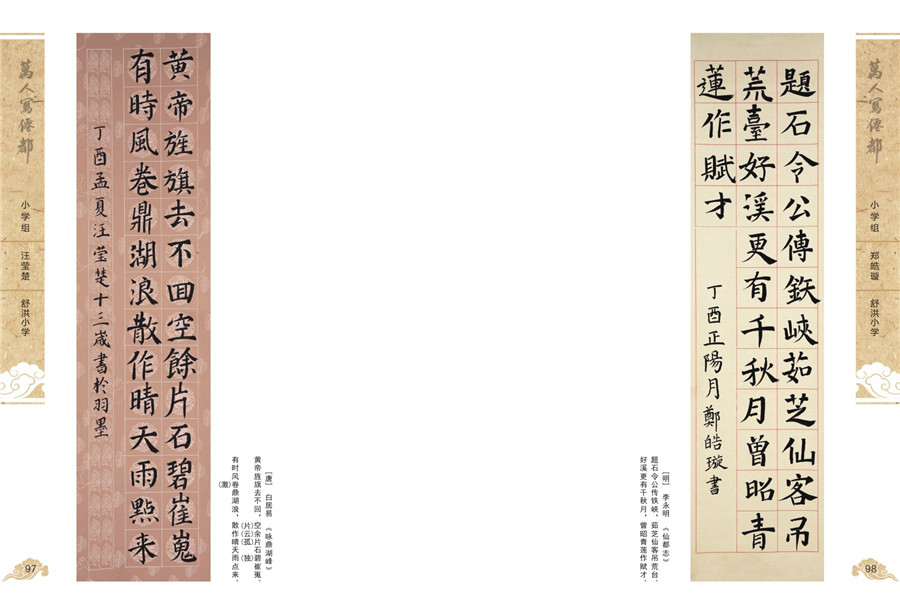 萬人寫仙都
小学组
汪莹楚
舒洪小学
黄帝旌旗去不回空餘片石碧崔嵬
有時風卷鼎湖浪散作晴天雨點来
丁酉孟夏汪莹楚十三歲書於羽墨
［唐］ 白居易 《咏鼎湖峰》
黄帝旌旗去不回，空余片石碧崔嵬，
(片)(云)(孤) (独)
有时风卷鼎湖浪，散作晴天雨点来。
(激)
97
題石令公傳鉄峽茹芝仙客吊
荒臺好溪更有千秋月曾昭青
蓮作賦才
丁酉正陽月鄭皓璇書
［明］ 李永明 《仙都志》
题石令公传铁峡，茹芝仙客吊荒台，
好溪更有千秋月，曾昭青莲作赋才。
萬人寫仙都
小学组
郑皓璇
舒洪小学
98